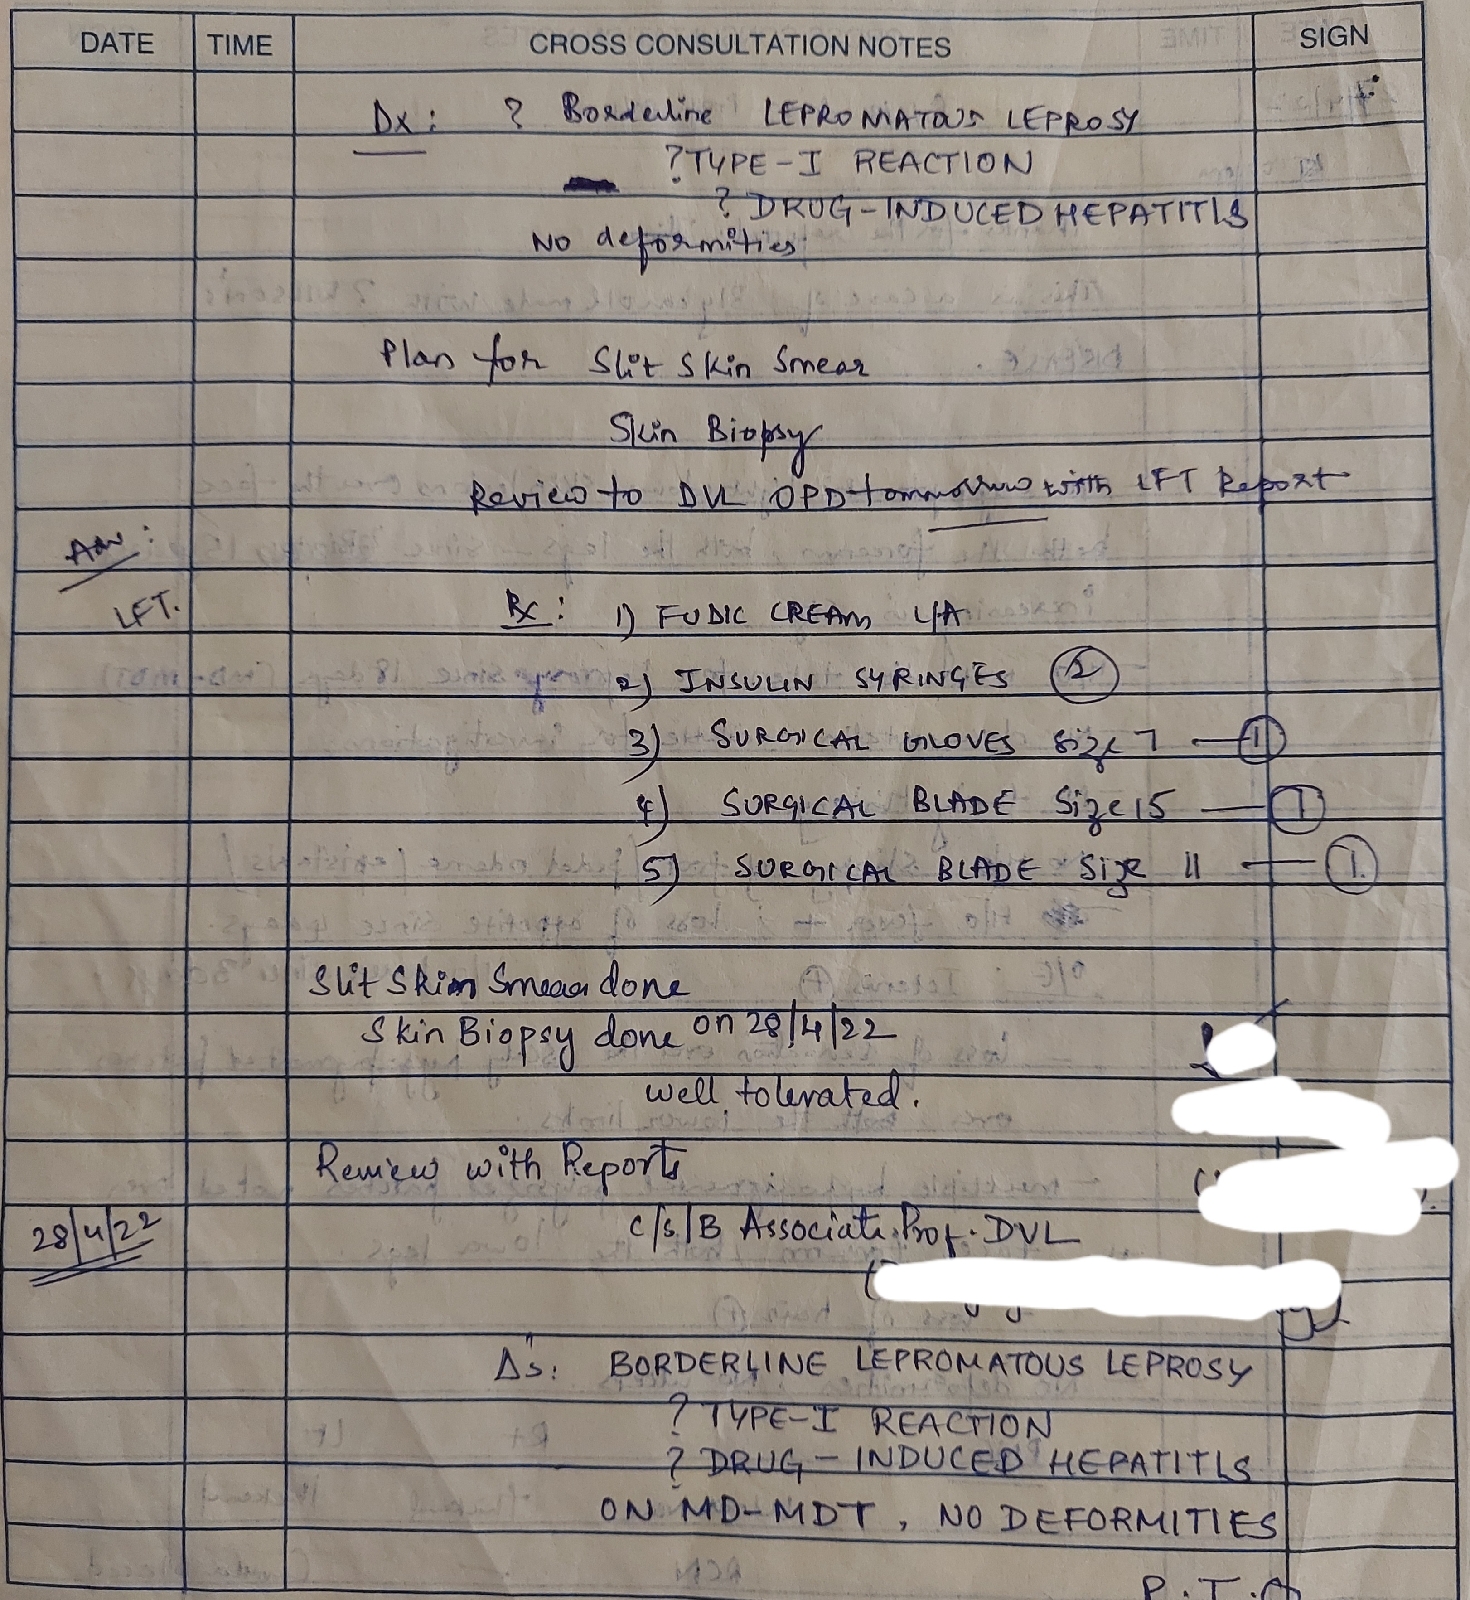 DATE TIME CROSS CONSULTATION NOTES SIGN
Dx : ? Borderline LEPROMATOUS LEPROSY
? TYPE-I REACTION
? DRUG-INDUCED HEPATITIS
NO deformities
Plan for Slit Skin Smear
Skin Biopsy
Review to DVL OPD tommorrow with LFT Report
Adv :
LFT. Rx : 1) FUDIC CREAM L/A
2) INSULIN SYRINGES 2
3) SURGICAL GLOVES Size 7 — 1
4) SURGICAL BLADE Size 15 — 1
5) SURGICAL BLADE Size 11 — 1.
Slit Skin Smear done
Skin Biopsy done on 28/4/22
well tolerated.
Review with Reports
28/4/22 c/s/B Associate Prof. DVL
Δs: BORDERLINE LEPROMATOUS LEPROSY
? TYPE-I REACTION
? DRUG-INDUCED HEPATITIS
ON MD-MDT, NO DEFORMITIES
P.T.O